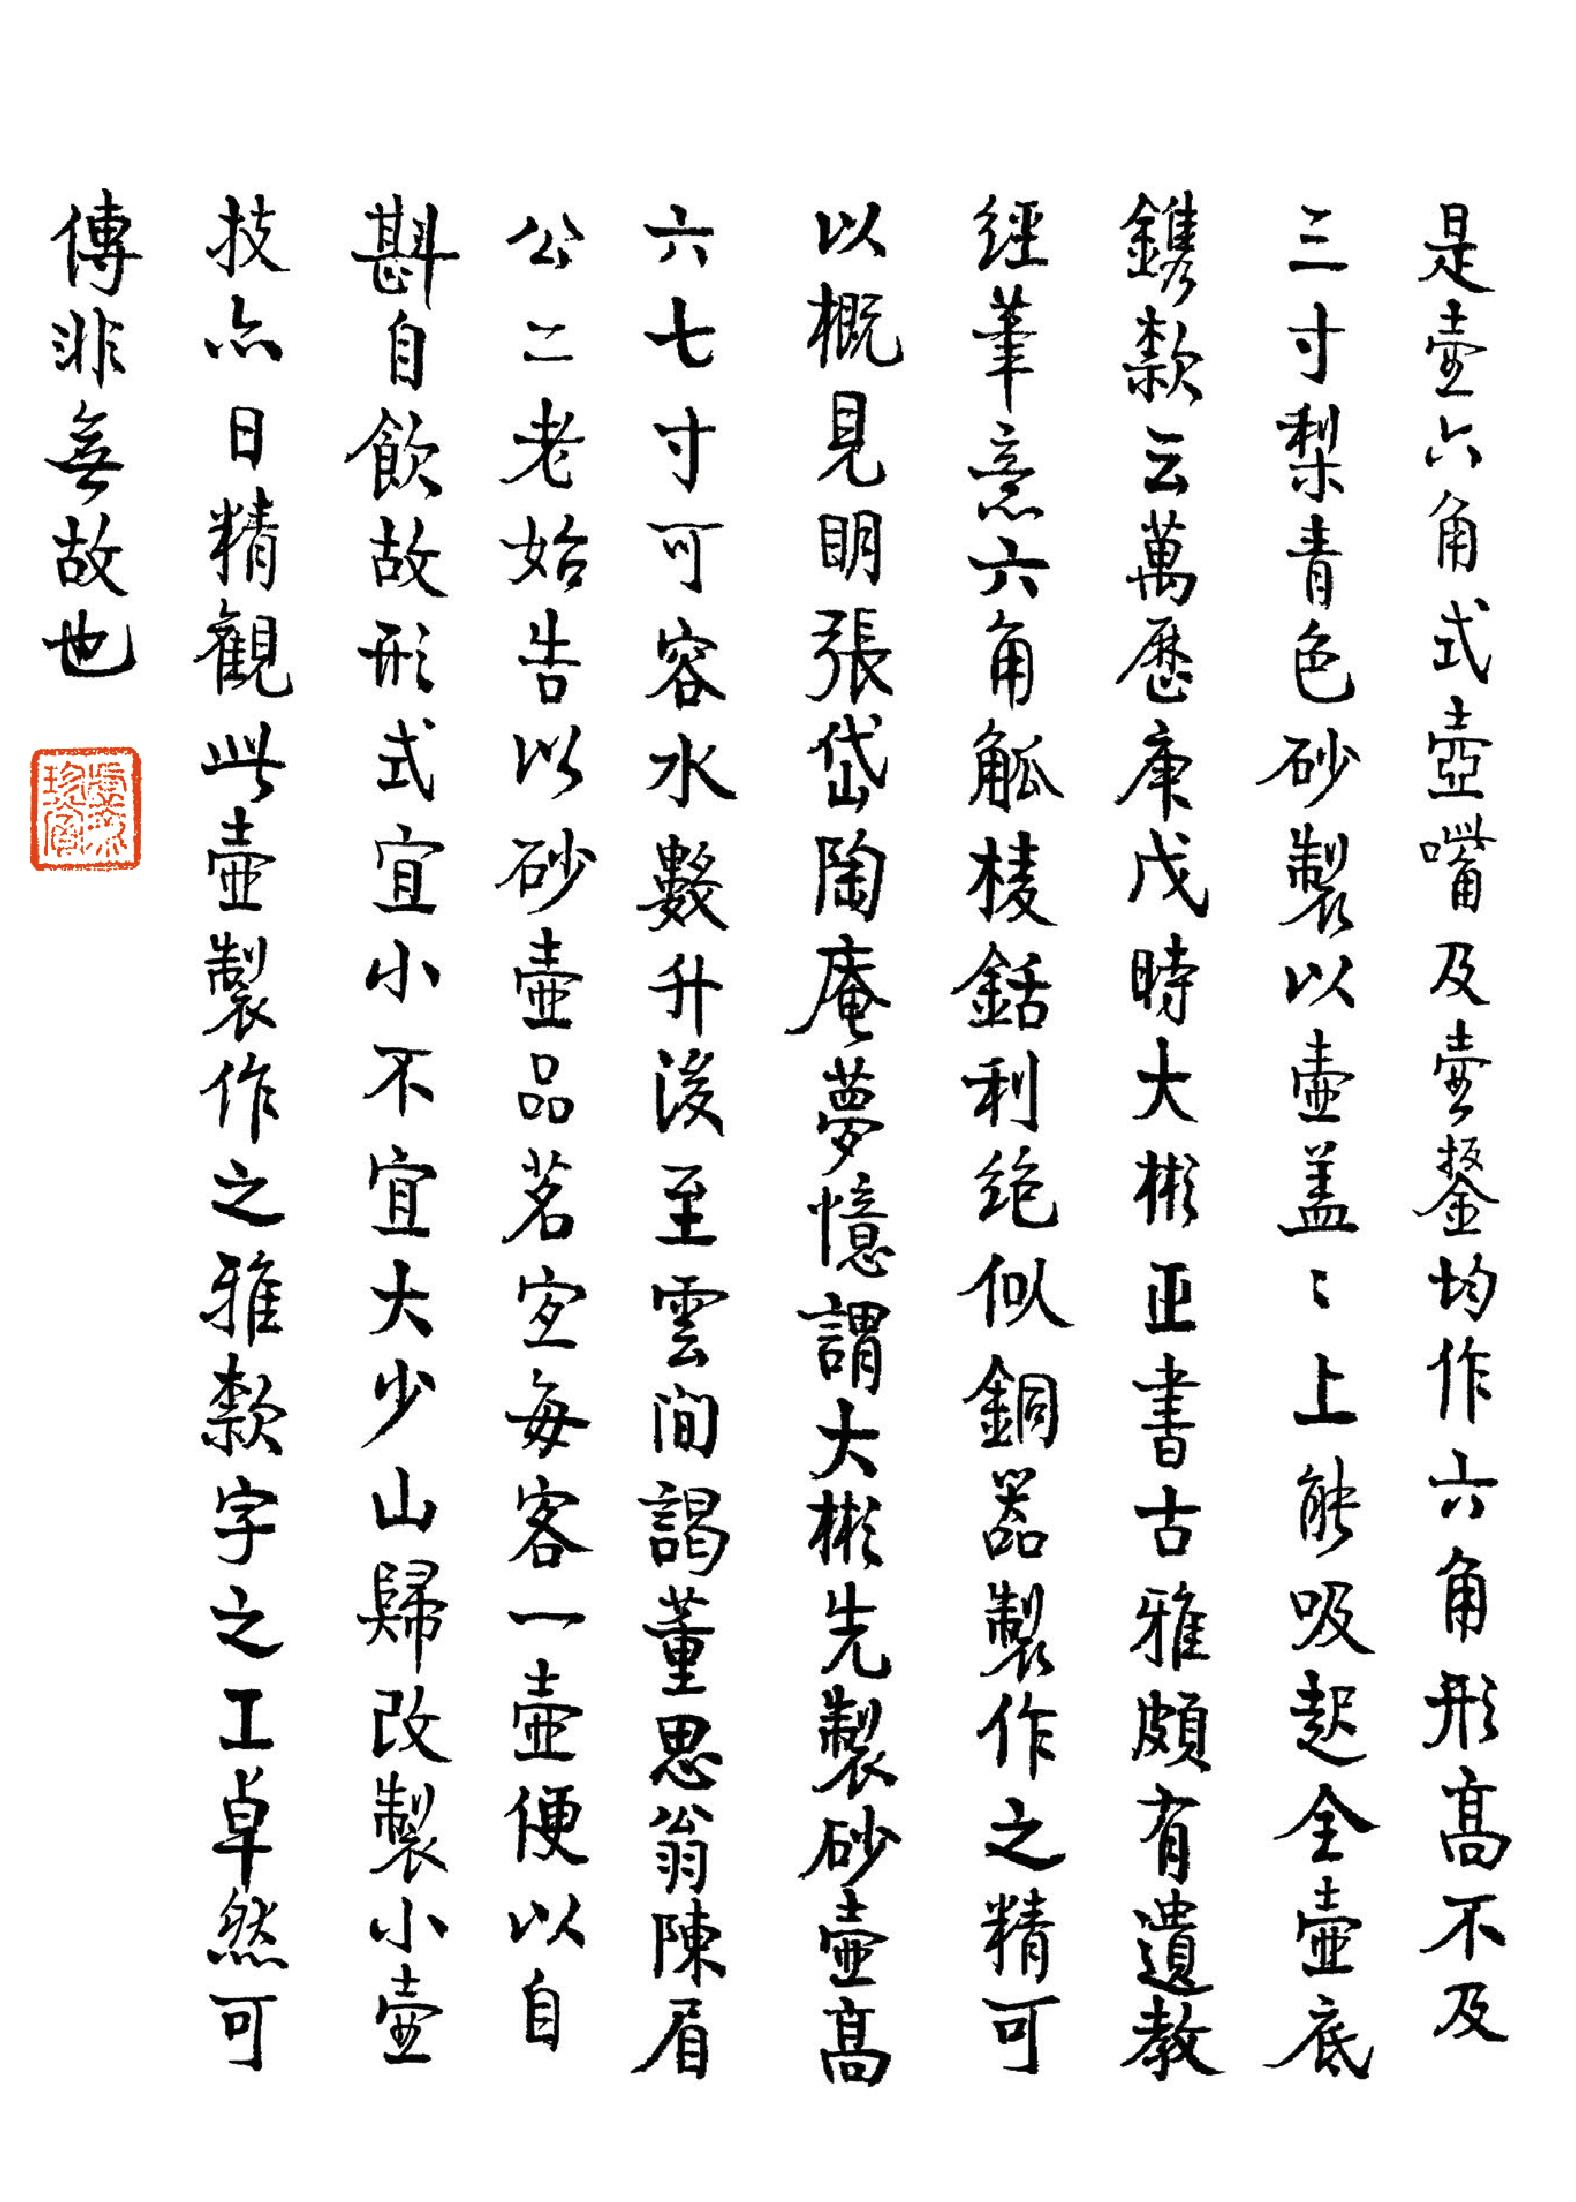 是壺六角式壺嘴及壺鋬均作六角形高不及
三寸梨青色砂製以壺盖〻上能吸起全壺底
鐫欵云萬厯庚戌時大彬正書古雅頗有遺教
經筆意六角觚棱銛利绝似銅器製作之精可
以概見明張岱陶庵夢憶謂大彬先製砂壺高
六七寸可容水數升後至雲间謁董思翁陳眉
公二老始告以砂壺品茗宜每客一壺便以自
斟自飲故形式宜小不宜大少山歸改製小壺
技亦日精觀此壺製作之雅欵字之工卓然可
傳非無故也